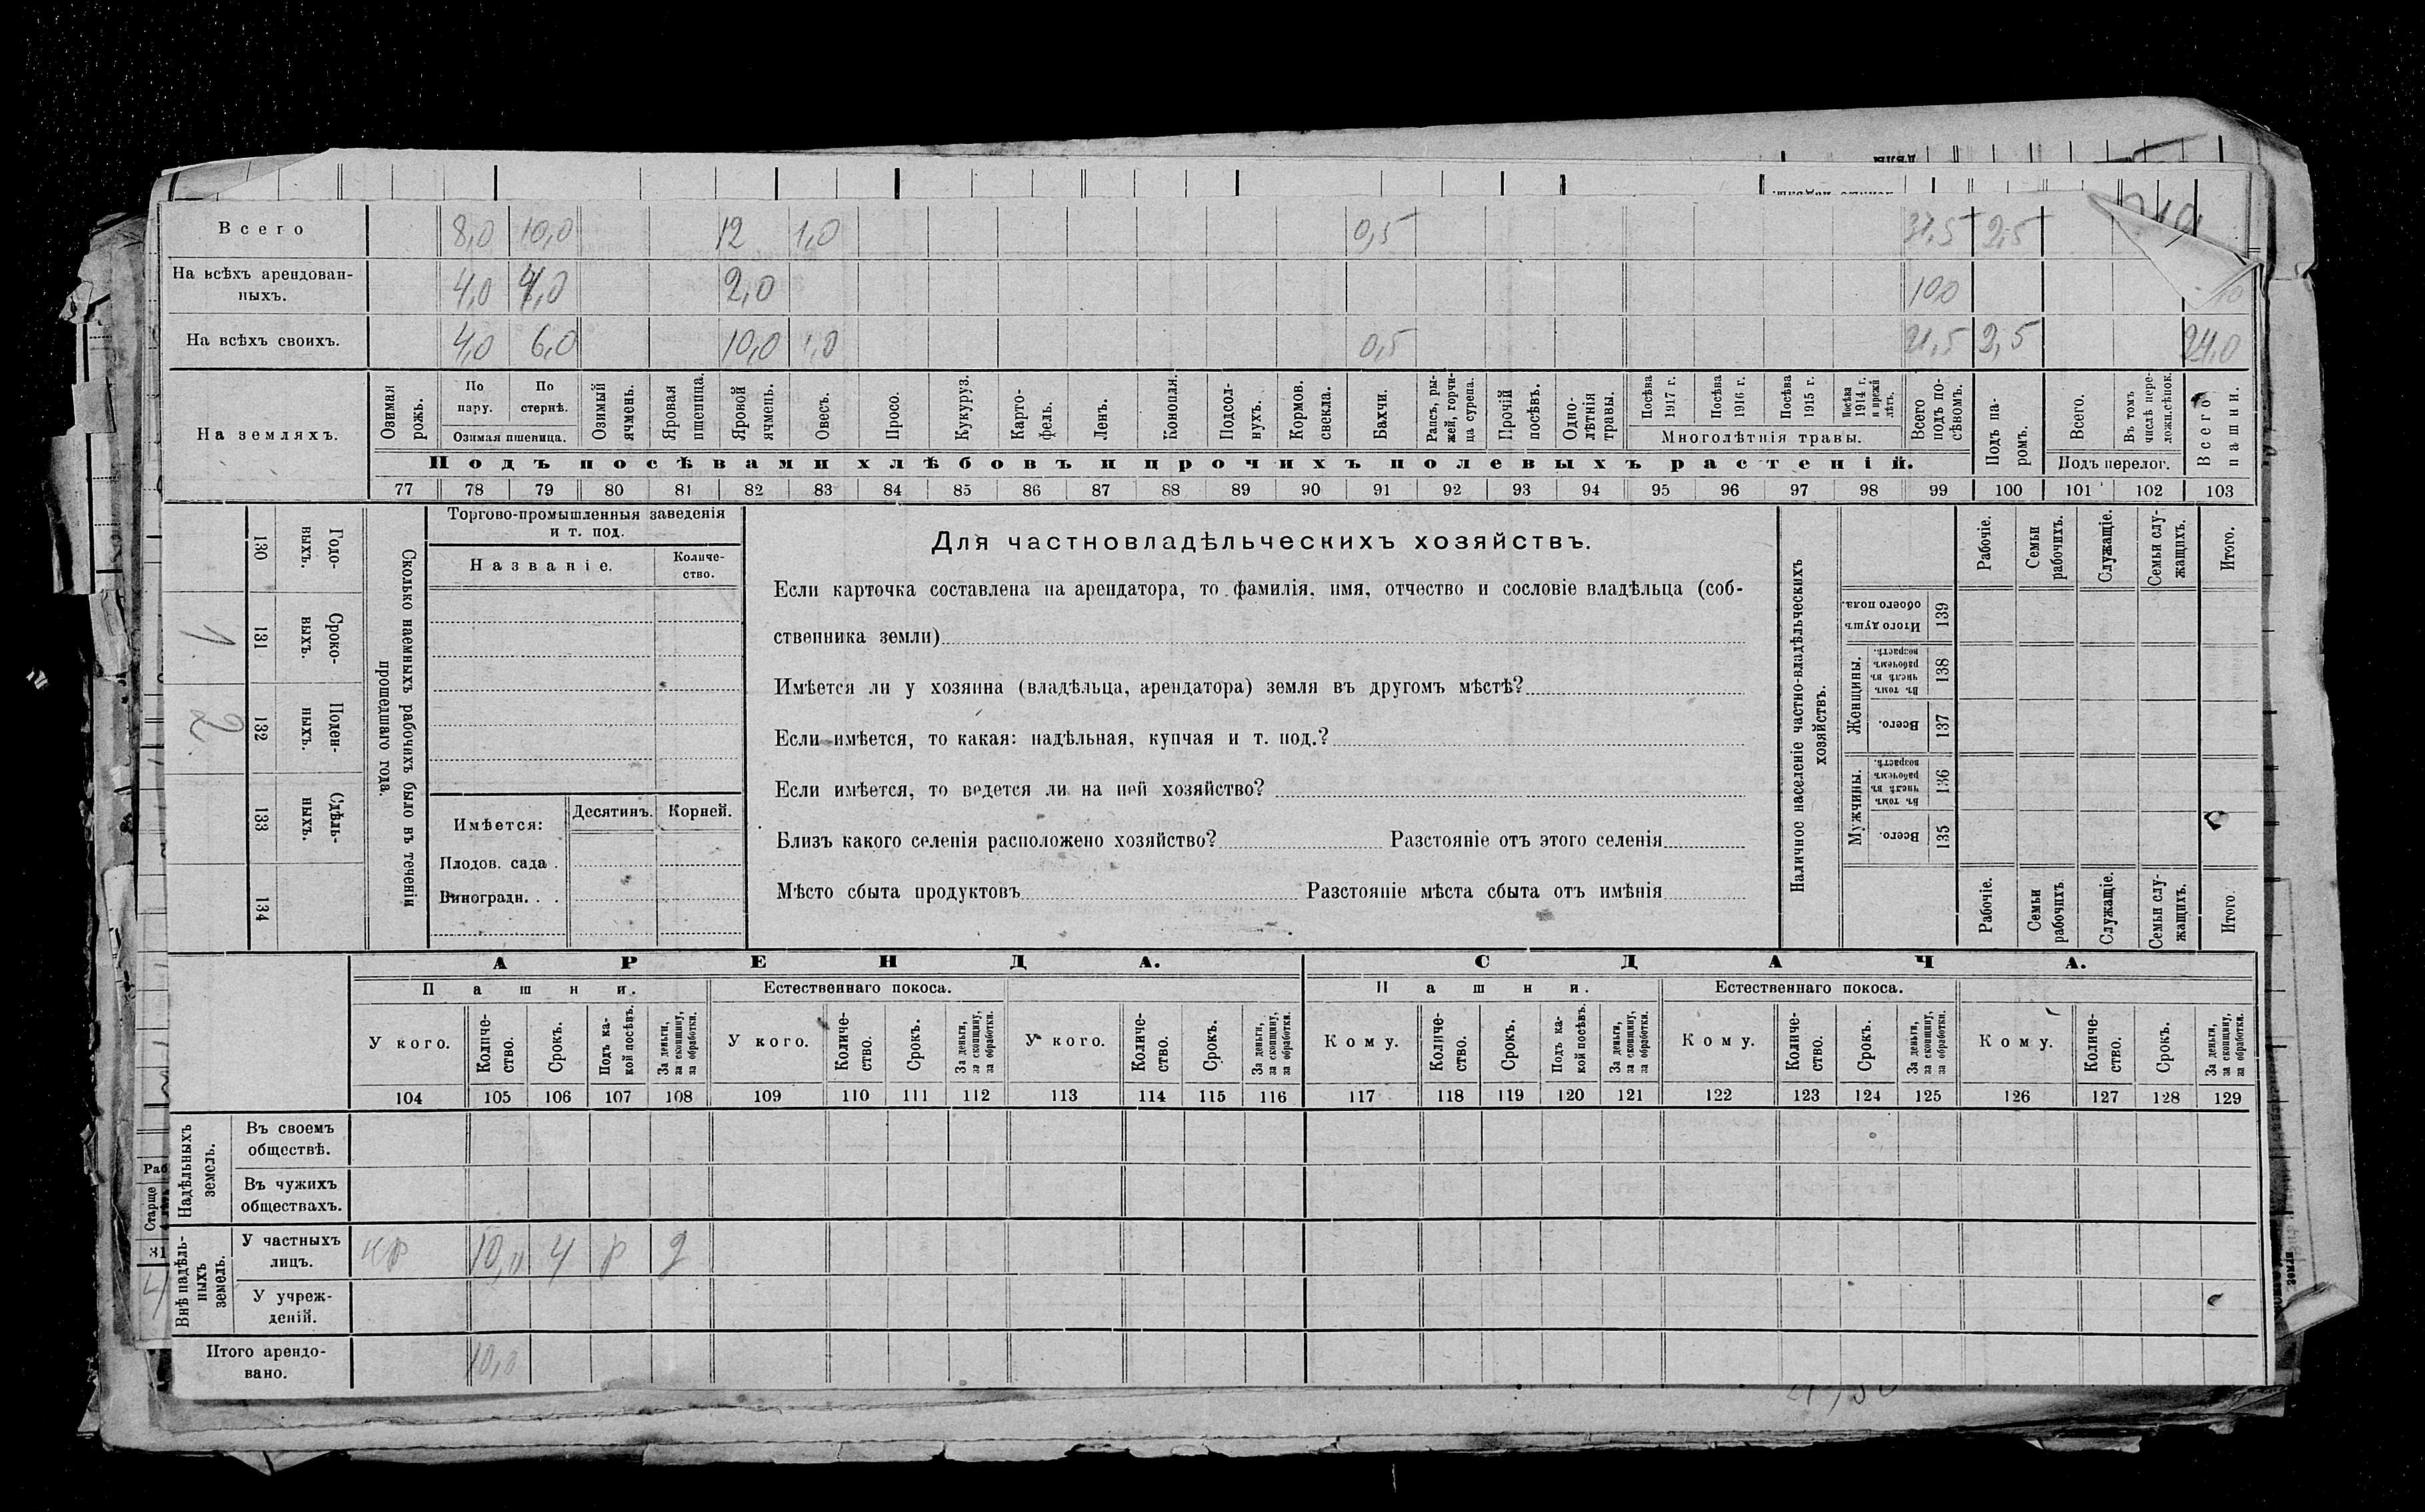 Всего 8,0 10,0 12 1,0 0,5 31,5 2,5
На всѣхъ арендован-
ныхъ. 4,0 4,0 2,0 10,0
На всѣхъ своихъ. 4,0 6,0 10,0 1,0 0,5 21,5 2,5 24,0
На земляхъ.
Озимая рожь.
По пару.
По стернѣ.
Озимая пшеница.
Озимый ячмень.
Яровая пшеница.
Яровой ячмень.
Овесъ.
Просо.
Кукуруз.
Карто-
фель.
Ленъ.
Конопля.
Подсол-
нухъ.
Кормов.
свекла.
Бахчи.
Рапсъ, ры-
жей, горчи-
ца сурепа.
Прочій
посѣвъ.
Одно-
лѣтнія
травы.
Посѣва
1917 г.
Посѣва
1916 г.
Посѣва
1915 г.
Посѣва
1914 г.
и прежн
лѣтъ.
Многолѣтнія травы.
Всего
подъ по-
сѣвомъ.
Подъ па-
ромъ.
Всего.
Въ томъ
числѣ пере-
ложн.сѣнок.
Подъ перелог.
Всего
пашни.
Подъ посѣвами хлѣбовъ и прочихъ полевыхъ растеній.
77 78 79 80 81 82 83 84 85 86 87 88 89 90 91 92 93 94 95 96 97 98 99 100 101 102 103
Годо-
ныхъ.
130
Сроко-
выхъ.
131
1.
Поден-
ныхъ.
132
2.
Сдѣль-
ныхъ.
133
134
Сколько наемныхъ рабочихъ было въ теченіи
прошедшаго года.
Торгово-промышленныя заведенія
и т. под.
Названіе.
Количе-
ство.
Имѣется:
Десятинъ.
Корней.
Плодов. сада .
Виноградн. . .
Для частновладѣльческихъ хозяйствъ.
Если карточка составлена на арендатора, то фамилія, имя, отчество и сословіе владѣльца (соб-
ственника земли)
Имѣется ли у хозяина (владѣльца, арендатора) земля въ другомъ мѣстѣ?
Если имѣется, то какая: надѣльная, купчая и т. под.?
Если имѣется, то ведется ли на ней хозяйство?
Близъ какого селенія расположено хозяйство? Разстояніе отъ этого селенія
Мѣсто сбыта продуктовъ Разстояніе мѣста сбыта отъ имѣнія
Наличное населеніе частно-владѣльческихъ
хозяйствъ.
Рабочіе.
Семьи
рабочихъ.
Служащіе.
Семьи слу-
жащихъ.
Итого.
Итого душъ
обоего пола.
139
Женщины.
Въ томъ
числѣ въ
рабочемъ
возрастѣ.
138
Всего.
137
Мужчины.
Въ томъ
числѣ въ
рабочемъ
возрастѣ.
136
Всего.
135
Рабочіе.
Семьи
рабочихъ
Служащіе.
Семьи слу-
жащихъ.
Итого.
АРЕНДА.
СДАЧА.
Пашни.
Естественнаго покоса.
Пашни.
Естественнаго покоса.
У кого.
Количе-
ство.
Срокъ.
Подъ ка-
кой посѣвъ.
За деньги,
за скопщину,
за обработки.
У кого.
Количе-
ство.
Срокъ.
За деньги,
за скопщину,
за обработки.
У кого.
Количе-
ство.
Срокъ.
За деньги,
за скопщину,
за обработки.
Кому.
Количе-
ство.
Срокъ.
Подъ ка-
кой посѣвъ.
За деньги,
за скопщину,
за обработки.
Кому.
Количе-
ство.
Срокъ.
За деньги,
за скопщину,
за обработки.
Кому.
Количе-
ство.
Срокъ.
За деньги,
за скопщину,
за обработки.
104 105 106 107 108 109 110 111 112 113 114 115 116 117 118 119 120 121 122 123 124 125 126 127 128 129
Надѣльныхъ
земель.
Въ своемъ
обществѣ.
Въ чужихъ
обществахъ.
Внѣ надѣль-
ныхъ
земель.
У частныхъ
лицъ. 10,0 4
У учреж-
деній.
Итого арендо-
вано. 10,0
Раб
Старше
31